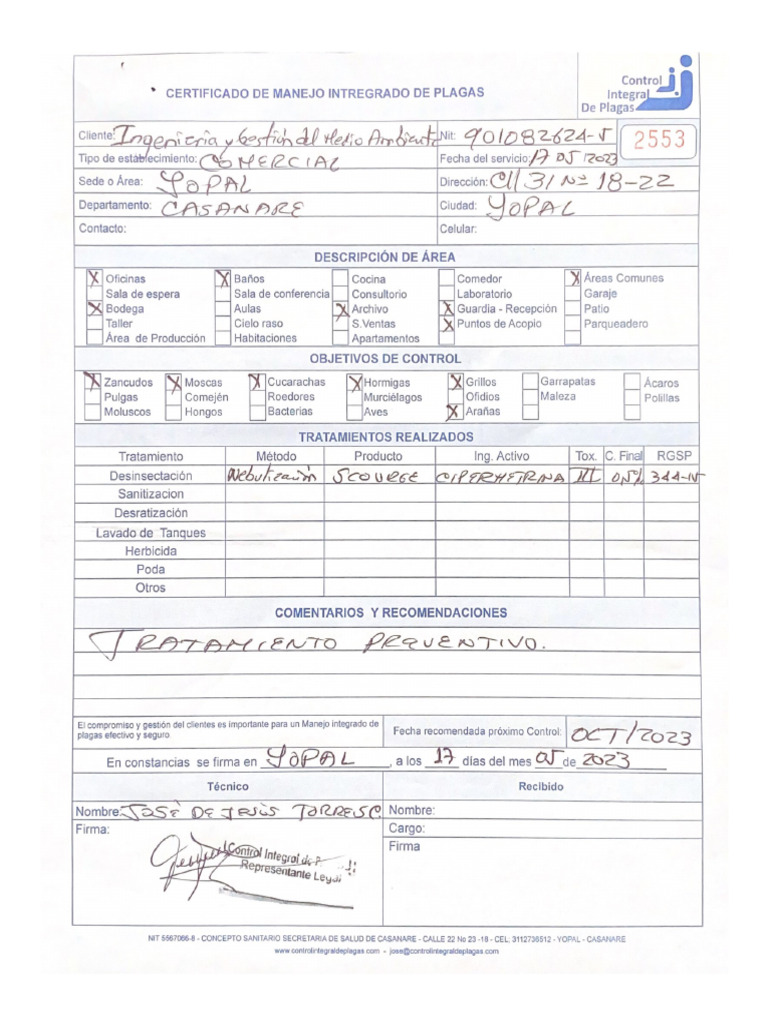 CERTIFICADO DE MANEJO INTREGRADO DE PLAGAS
Control
Integral
De Plagas
Cliente: Ingenieria y Gestión del Medio Ambiente Nit: 901082624-5
2553
Tipo de establecimiento: COMERCIAL Fecha del servicio: 17 05/2023
Sede o Área: YOPAL Dirección: Cll 31 Nº 18-22
Departamento: CASANARE Ciudad: YOPAL
Contacto: Celular:
DESCRIPCIÓN DE ÁREA
X Oficinas X Baños Cocina Comedor X Áreas Comunes
Sala de espera Sala de conferencia Consultorio Laboratorio Garaje
X Bodega Aulas X Archivo X Guardia - Recepción Patio
Taller Cielo raso S.Ventas X Puntos de Acopio Parqueadero
Área de Producción Habitaciones Apartamentos
OBJETIVOS DE CONTROL
X Zancudos X Moscas X Cucarachas X Hormigas X Grillos Garrapatas Ácaros
Pulgas Comején Roedores Murciélagos Ofidios Maleza Polillas
Moluscos Hongos Bacterias Aves X Arañas
TRATAMIENTOS REALIZADOS
Tratamiento Método Producto Ing. Activo Tox. C. Final RGSP
Desinsectación Nebulización SCOURGE CIPERMETRINA III 0,5% 344-15
Sanitizacion
Desratización
Lavado de Tanques
Herbicida
Poda
Otros
COMENTARIOS Y RECOMENDACIONES
TRATAMIENTO PREVENTIVO.
El compromiso y gestión del clientes es importante para un Manejo integrado de
plagas efectivo y seguro
Fecha recomendada próximo Control: OCT/2023
En constancias se firma en YOPAL, a los 17 días del mes 05 de 2023
Técnico Recibido
Nombre: JOSÉ DE JESÚS TORRES C. Nombre:
Firma: Cargo:
Firma
Control Integral de P.
Representante Legal
NIT 5567066-8 - CONCEPTO SANITARIO SECRETARIA DE SALUD DE CASANARE - CALLE 22 No 23 -18 - CEL: 3112736512 - YOPAL - CASANARE
www.controlintegraldeplagas.com - jose@controlintegraldeplagas.com